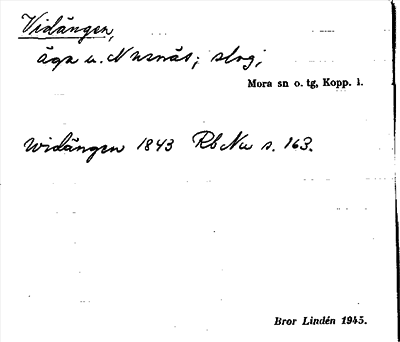 Vidängen,
äga u. Nusnäs; skog;
Mora sn o. tg, Kopp. l.
Widängen 1843 Rb Nu s. 163.
Bror Lindén 1945.